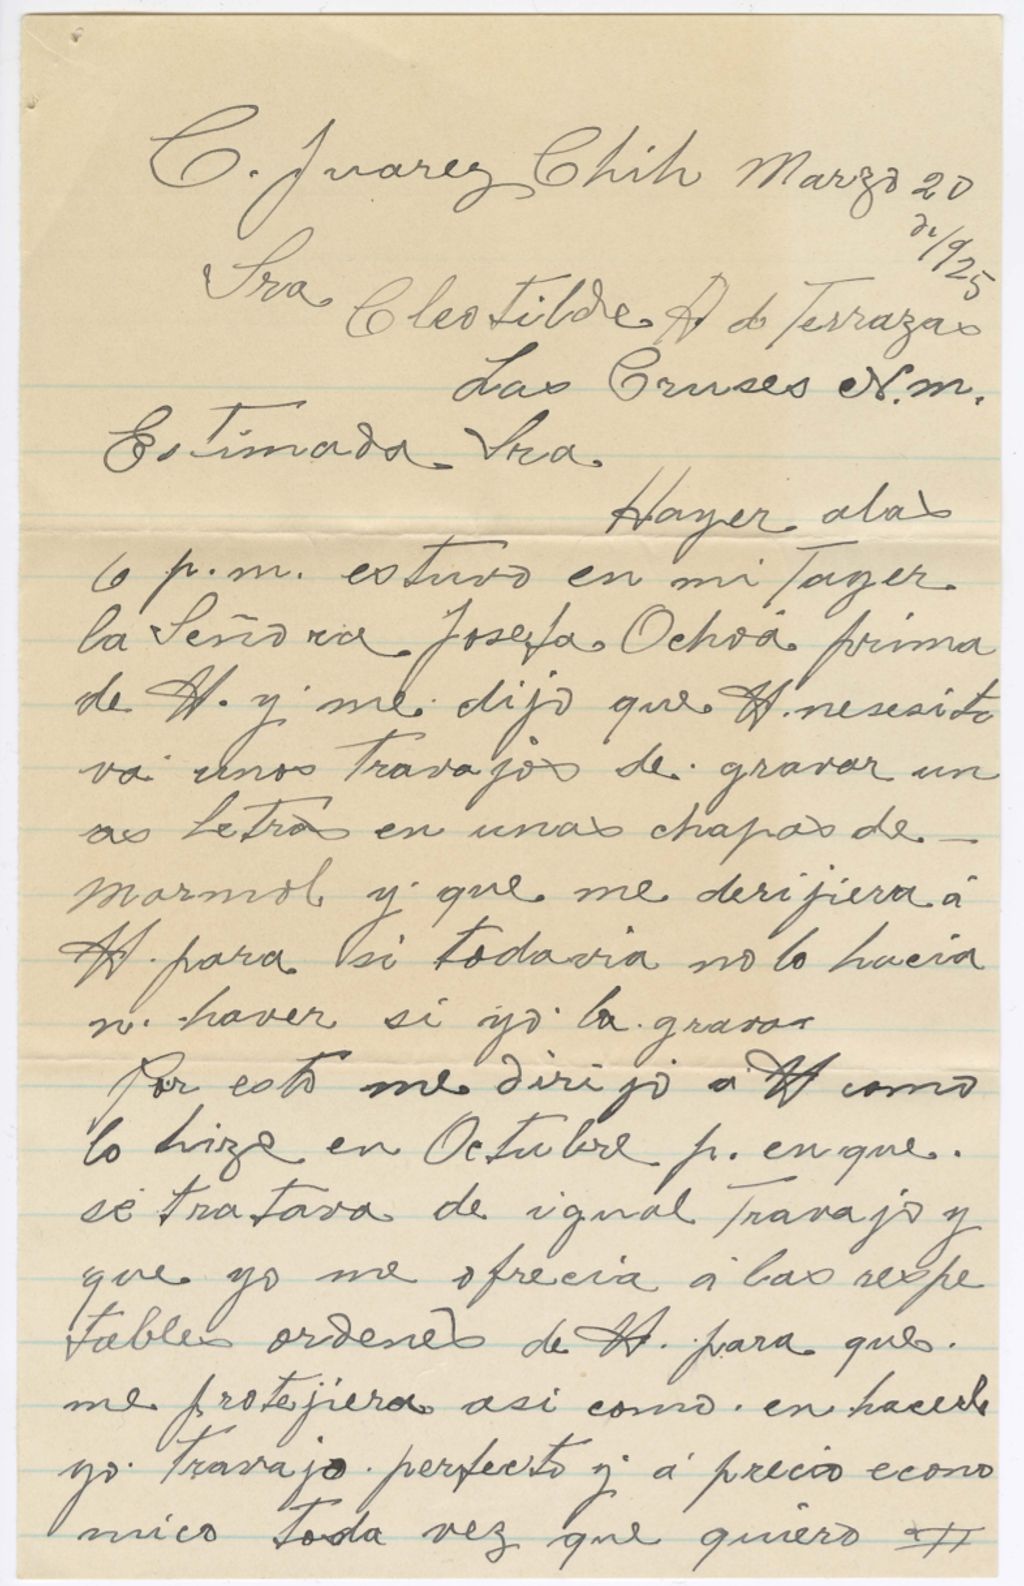 C. Juarez Chih Marzo 20
de/925
Sra
Cleotilde A de Terrazas
Las Cruses N.m.
Estimada Sra.
Hayer alas
6 p.m. estuvo en mi Tayer
la Señora Josefa Ochoa prima
de U. y me dijo que U. nesesita
va unos travajos de gravar un
as letras en unas chapas de -
Marmol y que me derijiera á
U. para si todavia no lo hacia
n. haver si yo la grava
Por esto me dirijo a U como
lo hize en Octubre p. en que.
se tratava de igual Travajo y
que yo me ofrecia á las respe
tables ordenes de U. para que.
me protejiera asi como. en hacerle
yo. Travajo. perfecto y a precio econo
mico toda vez que quiero